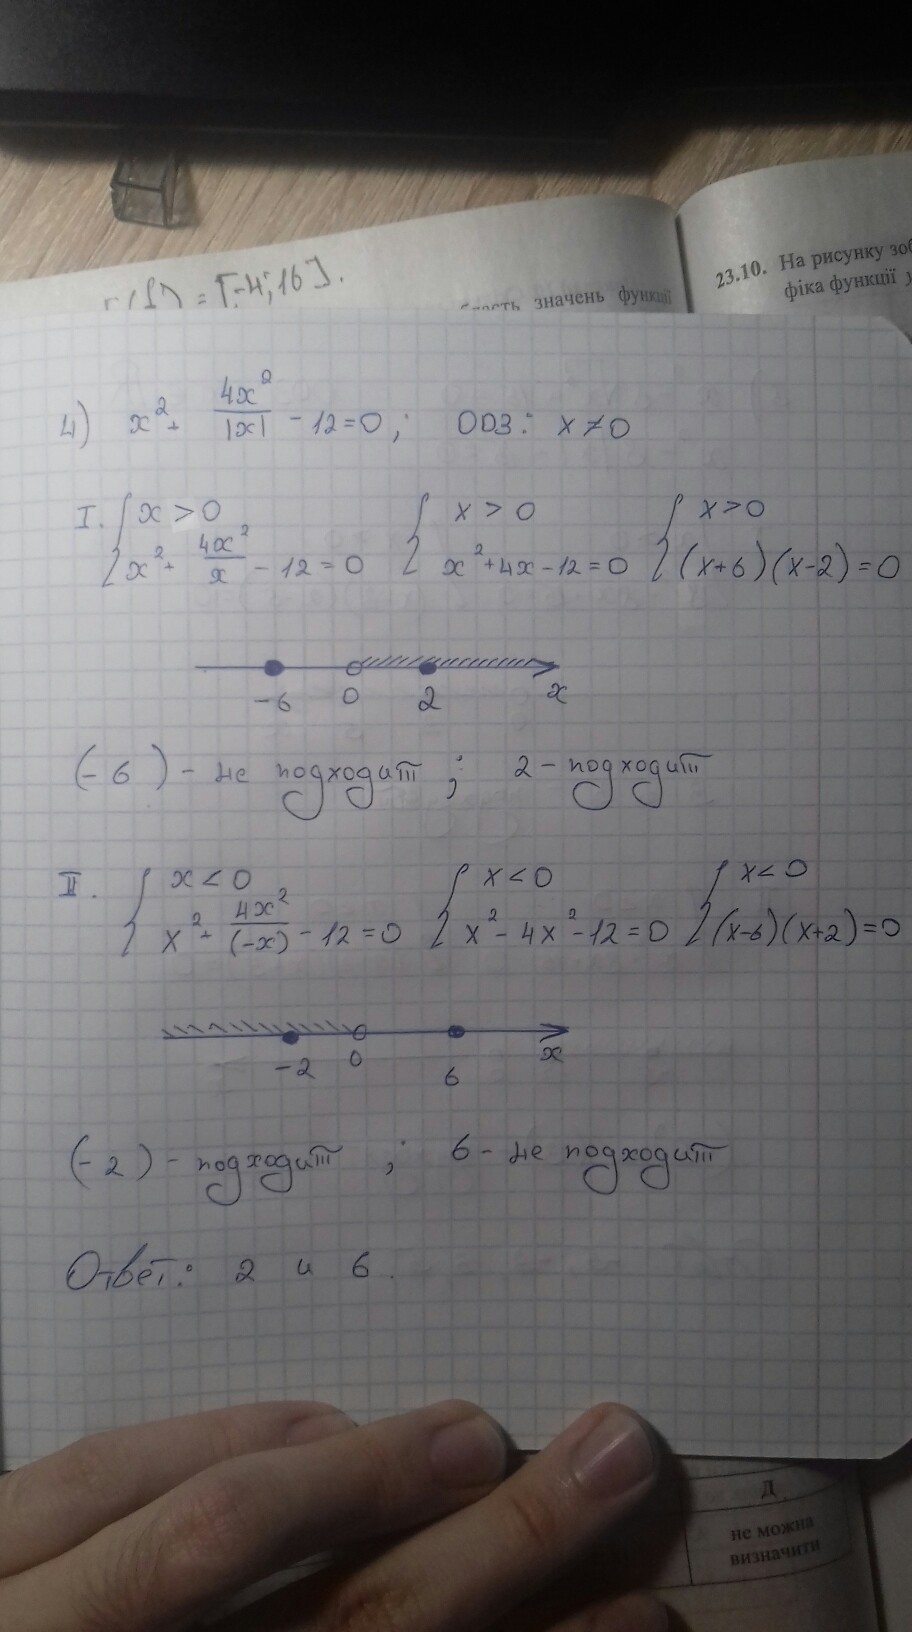 = [-4; 16].
значень функції
23.10. На рисунку
фіка функції
4) x² + 4x²/|x| - 12 = 0; ОДЗ: x ≠ 0
I. { x > 0 { x > 0 { x > 0
x² + 4x²/x - 12 = 0 x² + 4x - 12 = 0 (x+6)(x-2) = 0
-6 0 2 x
(-6) - не подходит; 2 - подходит
II. { x < 0 { x < 0 { x < 0
x² + 4x²/(-x) - 12 = 0 x² - 4x² - 12 = 0 (x-6)(x+2) = 0
-2 0 6 x
(-2) - подходит; 6 - не подходит
Ответ: 2 и 6.
Д
не можна
визначити